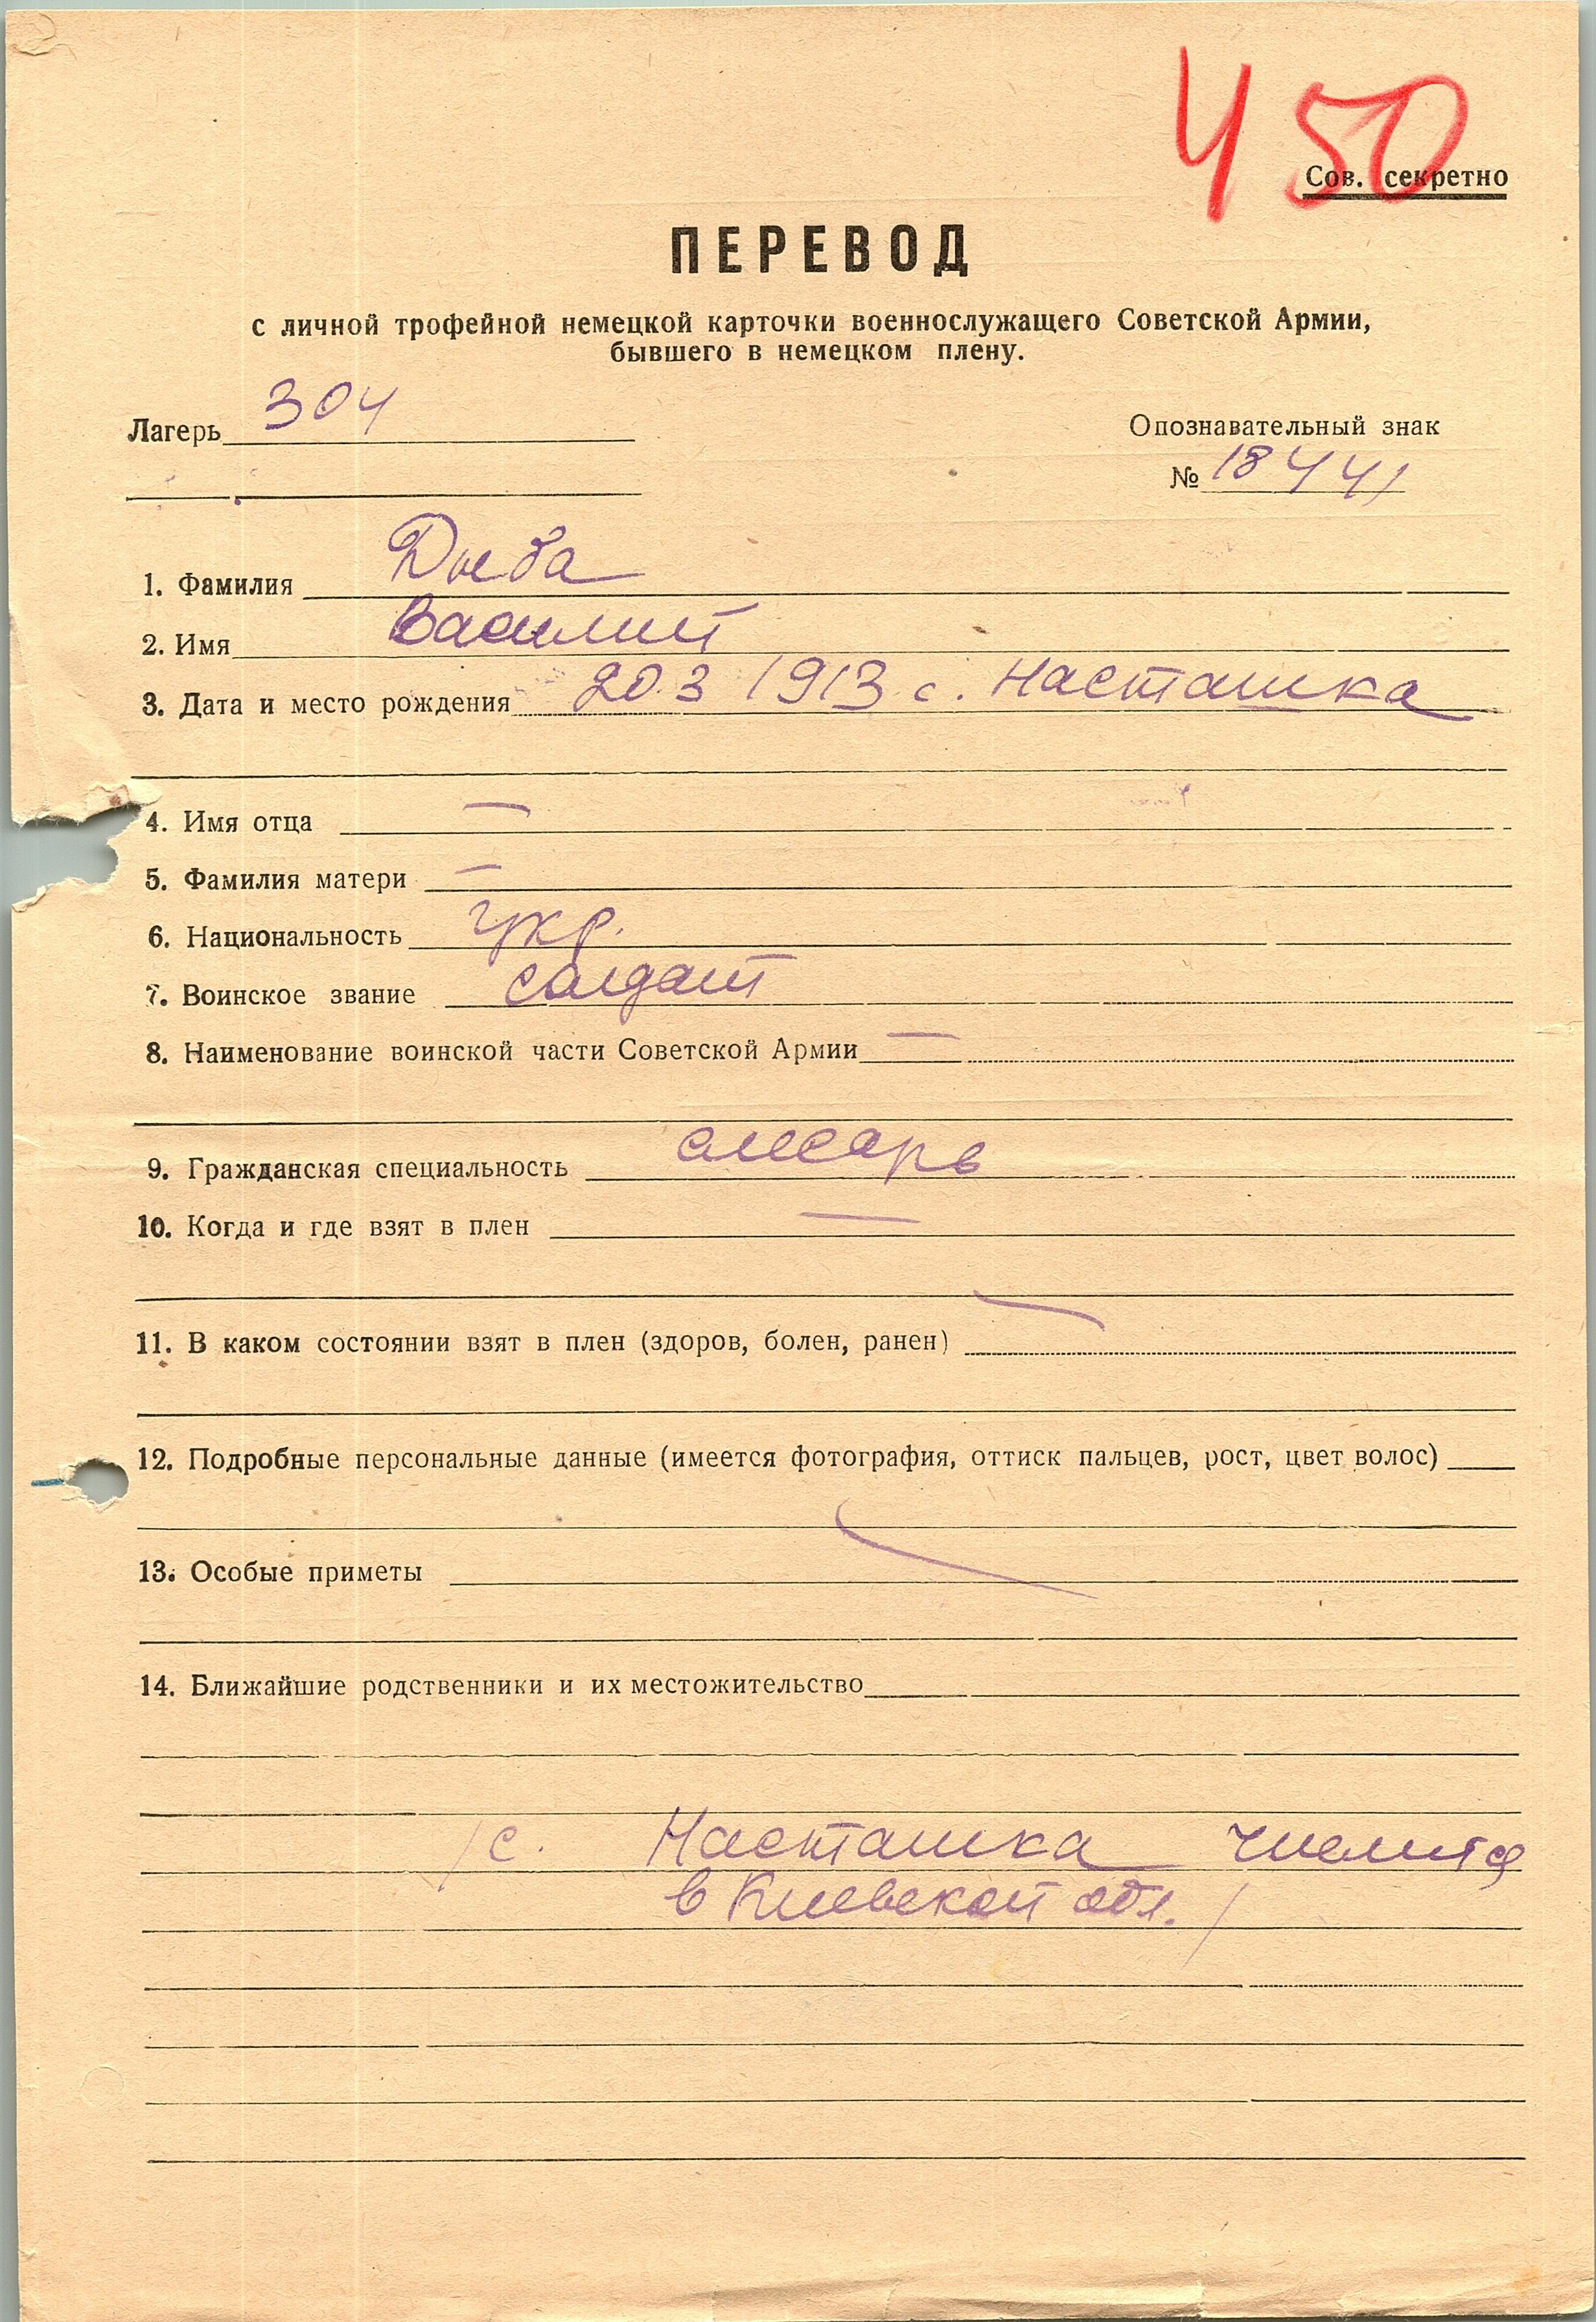 Ч 50
Сов. секретно
ПЕРЕВОД
с личной трофейной немецкой карточки военнослужащего Советской Армии,
бывшего в немецком плену.
Лагерь 304
Опознавательный знак
№ 18441
1. Фамилия Дыба
2. Имя Василий
3. Дата и место рождения 20.3 1913 с. Насташка
4. Имя отца —
5. Фамилия матери —
6. Национальность укр.
7. Воинское звание солдат
8. Наименование воинской части Советской Армии —
9. Гражданская специальность слесарь
10. Когда и где взят в плен —
11. В каком состоянии взят в плен (здоров, болен, ранен) —
12. Подробные персональные данные (имеется фотография, оттиск пальцев, рост, цвет волос)
13. Особые приметы
14. Ближайшие родственники и их местожительство
/с. Насташка числится
в Киевской обл./